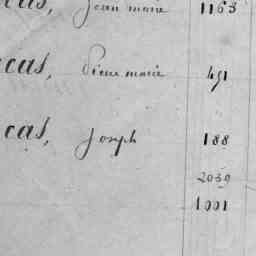 cas, Jean marie 1163
cas, Pierre marie 491
cas, Joseph 188
2039
1001